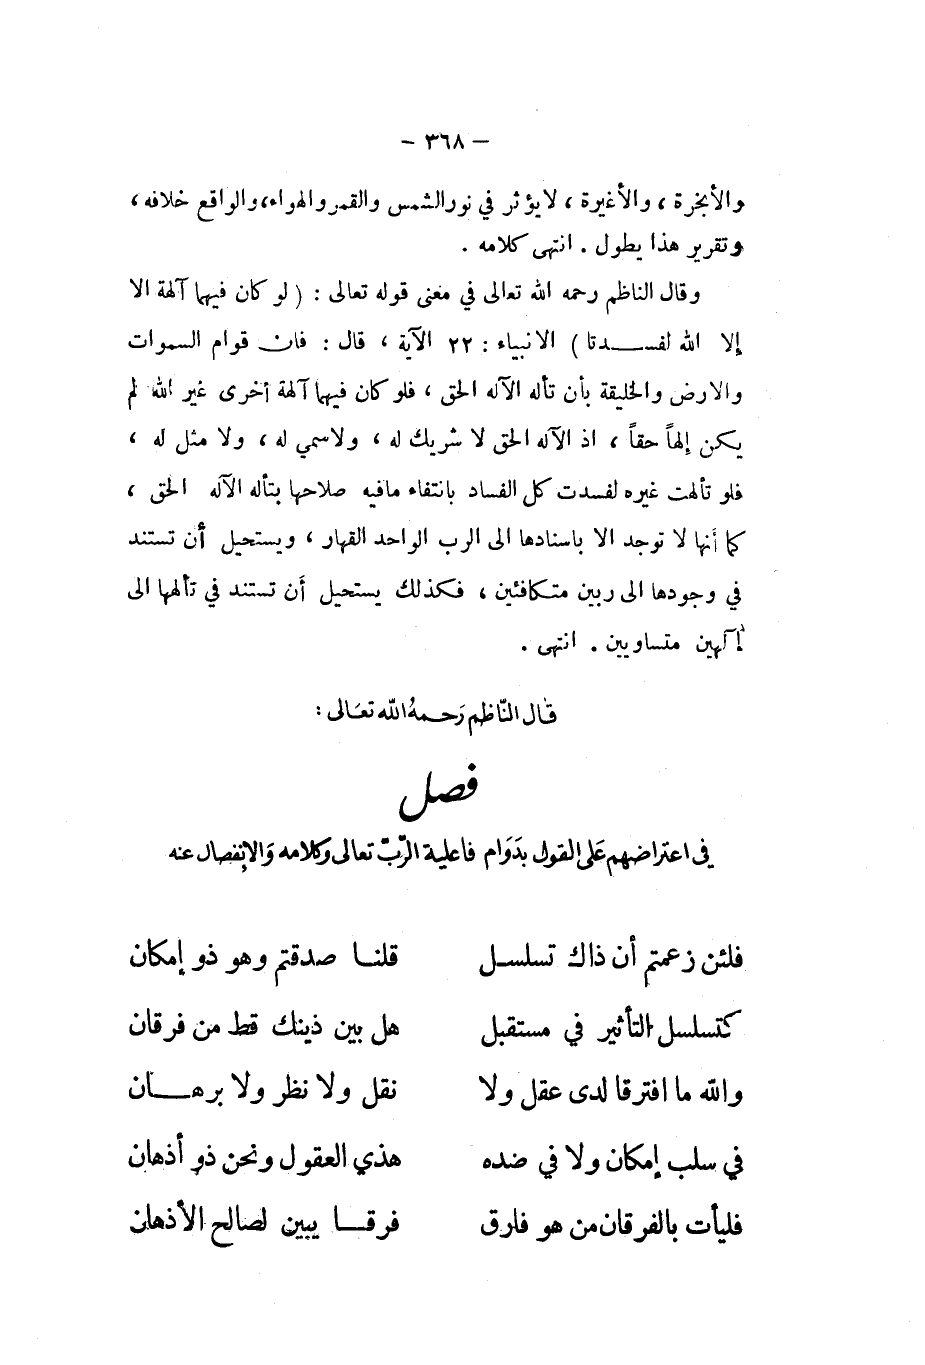 — ٣٦٨ —
والأبخرة ، والأغيرة ، لايؤثر في نورالشمس والقمر والهواء،والواقع خلافه ،
وتقرير هذا يطول . انتهى كلامه .
وقال الناظم رحمه الله تعالى في معنى قوله تعالى : ( لو كان فيهما آلهة الا
إلا الله لفسـدتا ) الانبياء : ٢٢ الآية ، قال : فان قوام السموات
والارض والخليقة بأن تأله الآله الحق ، فلو كان فيهما آلهة أخرى غير الله لم
يكن إلهاً حقاً ، اذ الآله الحق لا شريك له ، ولاسمي له ، ولا مثل له ،
فلو تألهت غيره لفسدت كل الفساد بانتفاء مافيه صلاحها بتأله الآله الحق ،
كما أنها لا توجد الا باسنادها الى الرب الواحد القهار ، ويستحيل أن تستند
في وجودها الى ربين متكافئين ، فكذلك يستحيل أن تستند في تألهها الى
إآلهين متساويين . انتهى .
قال النّاظم رَحمهُ الله تعَالى :
فصل
في اعتراضهم عَلى القول بدَوَام فاعلية الرّبّ تعالى وكلامه وَالإنفصال عنه
فلئن زعمتم أن ذاك تسلسل قلنا صدقتم وهو ذو إمكان
كتسلسل التأثير في مستقبل هل بين ذينك قط من فرقان
والله ما افترقا لدى عقل ولا نقل ولا نظر ولا برهـان
في سلب إمكان ولا في ضده هذي العقول ونحن ذو أذهان
فليأت بالفرقان من هو فارق فرقـا يبين لصالح الأذهان